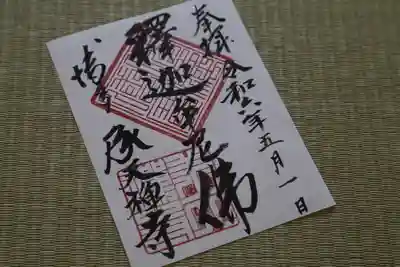 奉拝 令和六年五月一日
釋迦牟尼佛
博多 承天禪寺